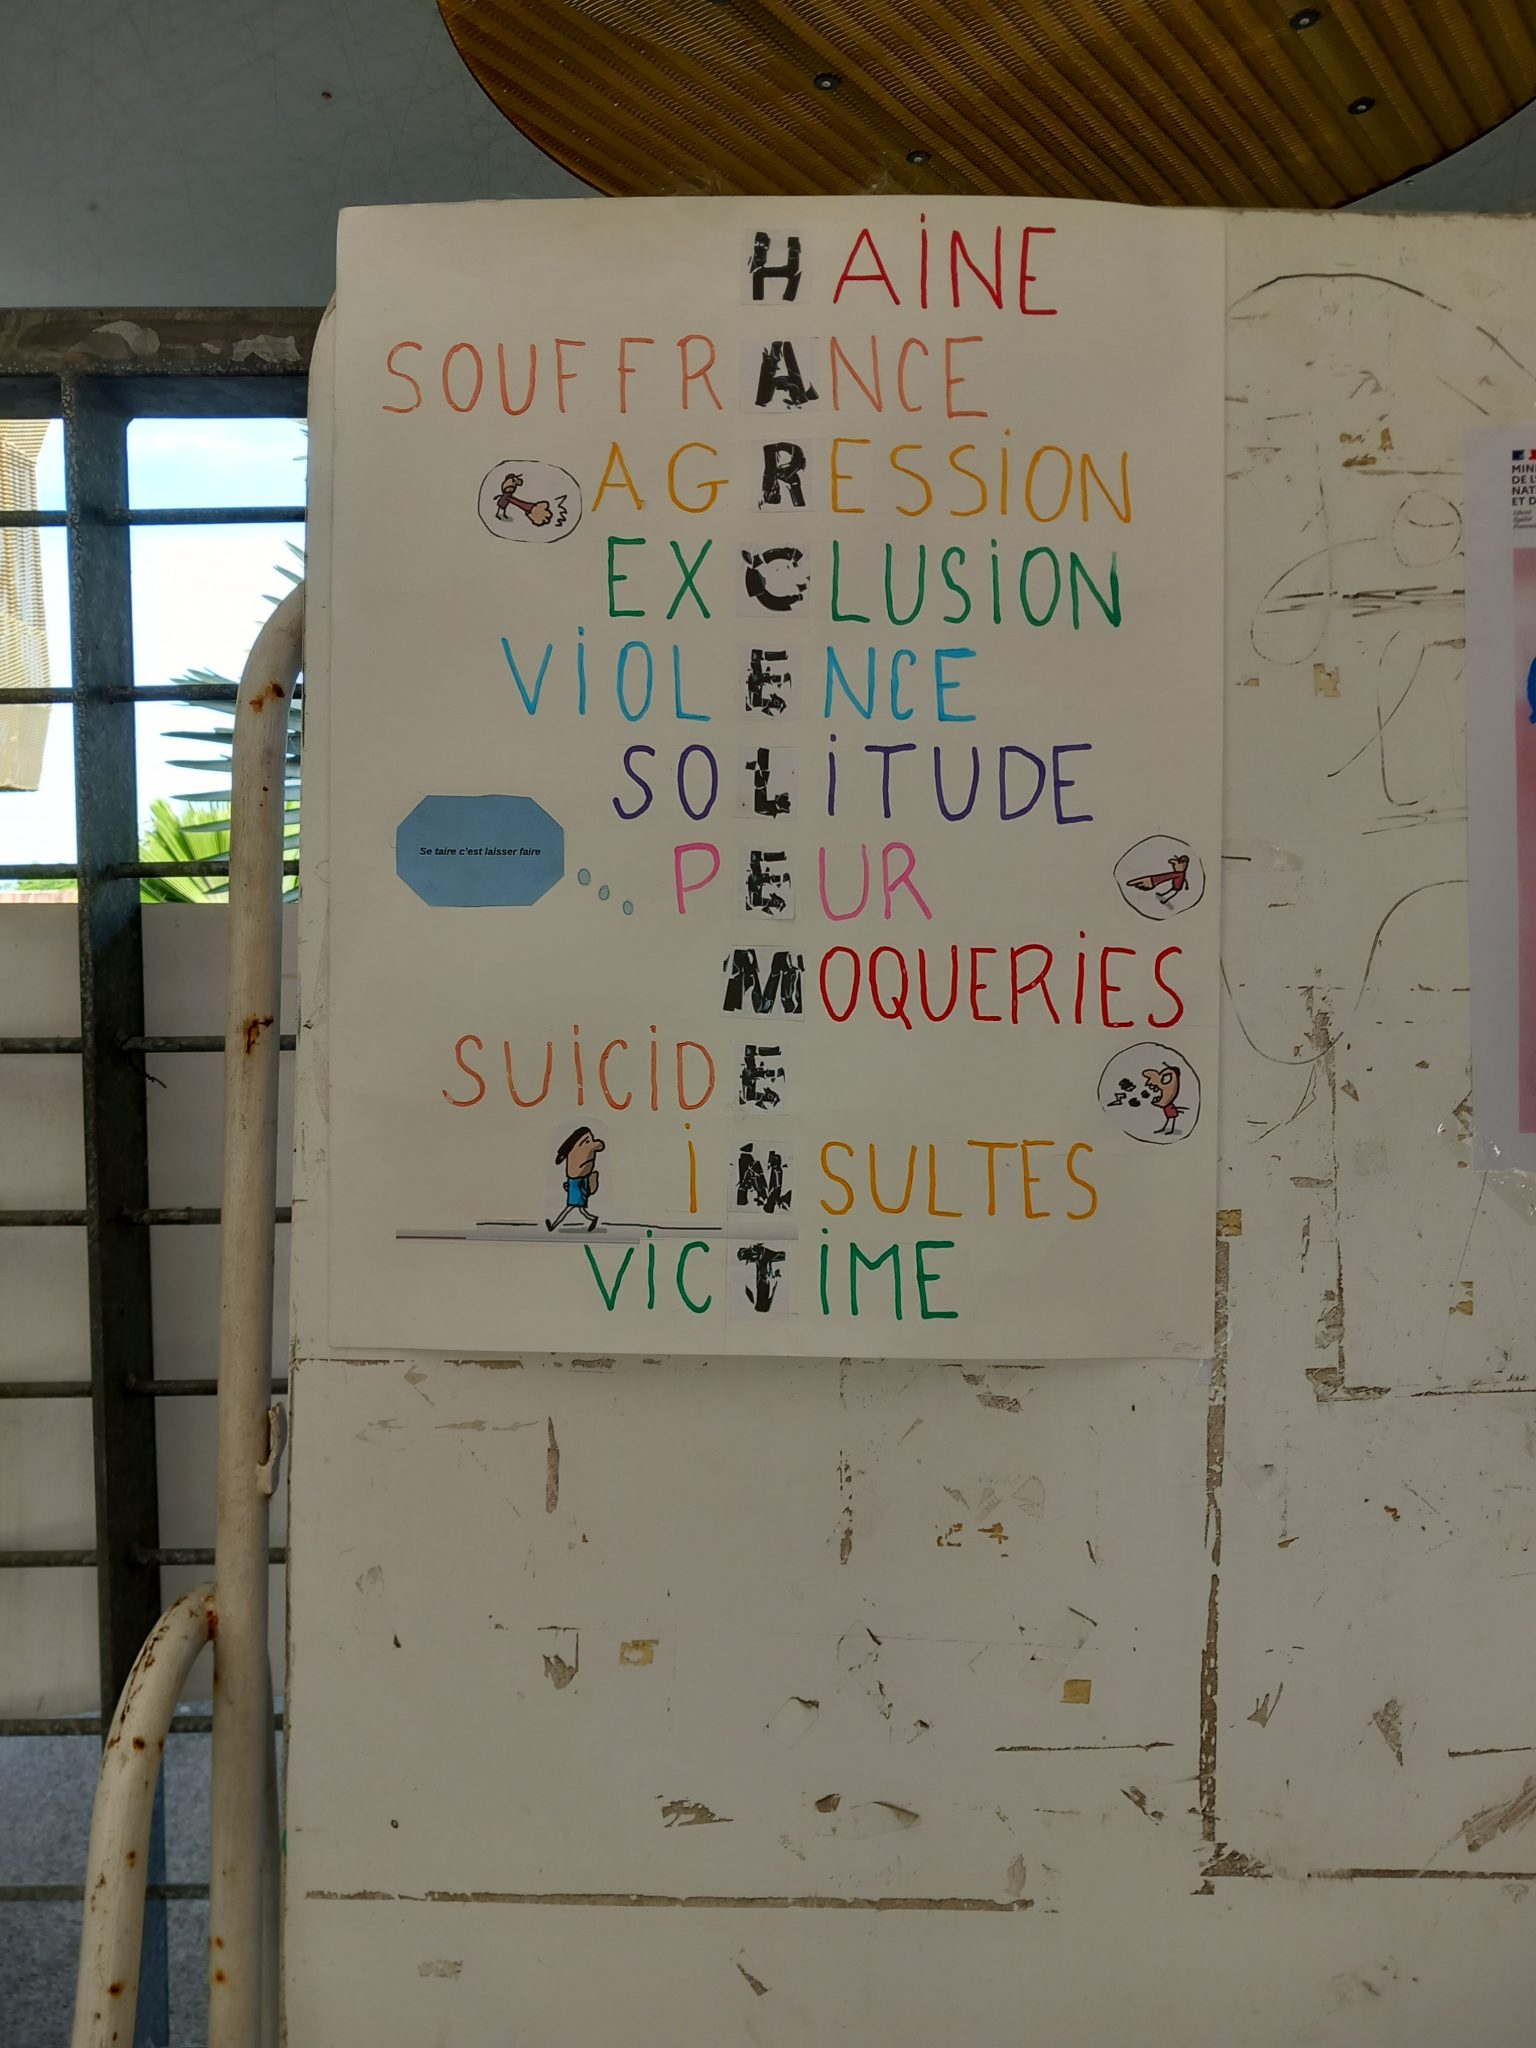 HAINE
SOUFFRANCE
AGRESSION
EXCLUSION
VIOLENCE
SOLITUDE
Se taire c'est laisser faire
PEUR
MOQUERIES
SUICIDE
INSULTES
VICTIME
MINI
DE L'
NAT
ET D